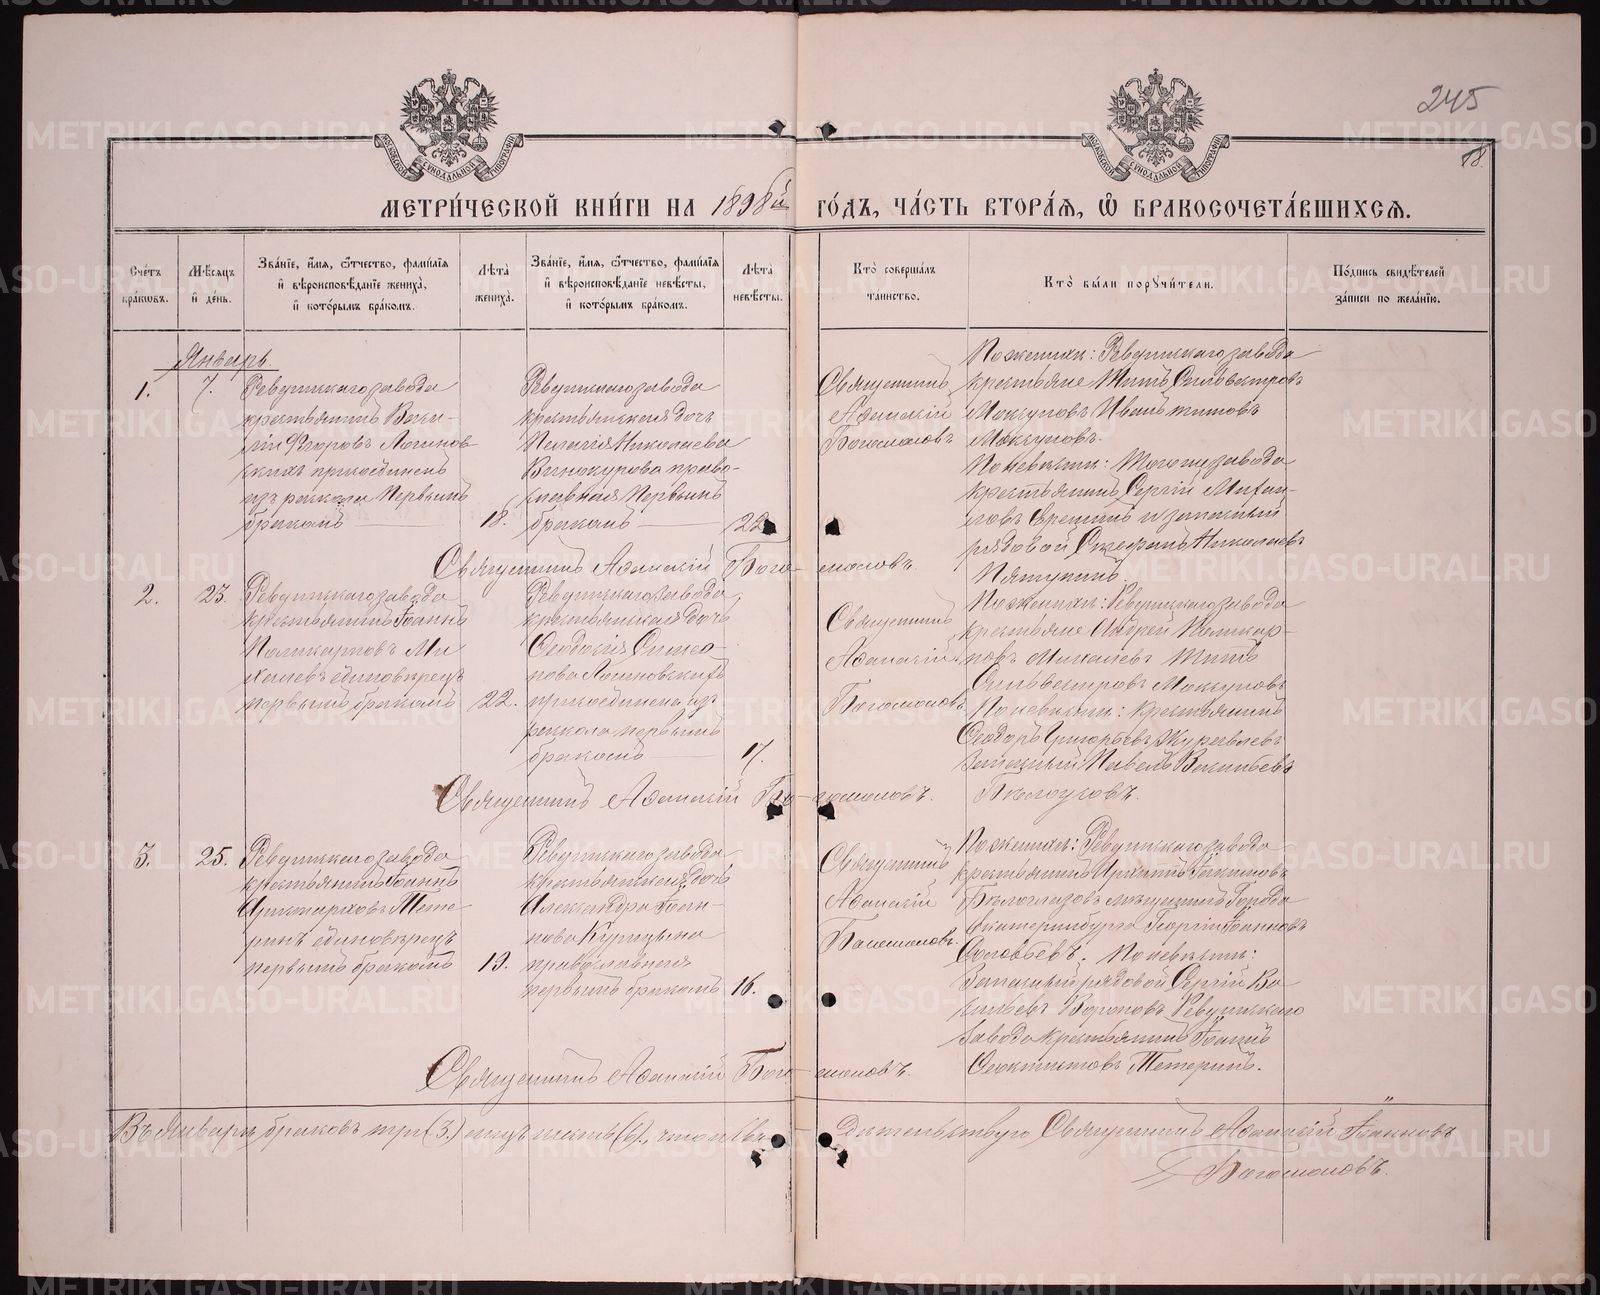 245
18.
МОСКОВСКОЙ СУНОДАЛЬНОЙ ТИПОГРАФІИ
МОСКОВСКОЙ СУНОДАЛЬНОЙ ТИПОГРАФІИ
МЕТРИ́ЧЕСКОЙ КНИ́ГИ НА 1898й ГО́ДЪ, ЧА́СТЬ ВТОРА́Я, Ѽ БРАКОСОЧЕТА́ВШИХСЯ.
Счетъ браковъ.
Мѣсяцъ и день.
Зва́ніе, и́мя, ѻ҆́тчество, фами́лія
и҆ вѣроисповѣ́даніе жениха̀,
и҆ кото́рымъ бра́комъ.
Лѣта̀ жениха̀.
Зва́ніе, и́мя, ѻ҆́тчество, фами́лія
и҆ вѣроисповѣ́даніе невѣ́сты,
и҆ кото́рымъ бра́комъ.
Лѣта̀ невѣ́сты.
Кто̀ соверша́лъ
та́инство.
Кто̀ бы́ли поручи́тели.
По́дпись свидѣ́телей
за́писи по жела́нію.
Январь.
1.
7.
Ревдинскаго завода
крестьянинъ Васи-
лій Ѳедоровъ Логинов-
скихъ присоединенъ
изъ раскола Первымъ
бракомъ
18.
Ревдинскаго завода
крестьянская дочь
Пелагія Николаева
Винокурова право-
славная Первымъ
бракомъ
22
Священникъ
Аѳанасій
Богомоловъ
По женихѣ: Ревдинскаго завода
крестьяне Титъ Сильвестровъ
Мокѣуновъ Иванъ Титовъ
Мокѣуновъ.
По невѣстѣ: Тогоже завода
крестьянинъ Сергій Михаи-
ловъ Еремѣинъ и запасный
рядовой Стефанъ Николаевъ
Пятунинъ.
Священникъ Аѳанасій Богомоловъ
2.
23.
Ревдинскаго завода
крестьянинъ Іоаннъ
Поликарповъ Ми-
халевъ единовѣрецъ
первымъ бракомъ
22.
Ревдинскаго завода
крестьянская дочь
Ѳеодосія Симео-
нова Логиновскихъ
присоединена изъ
раскола первымъ
бракомъ
17.
Священникъ
Аѳанасій
Богомоловъ
По женихѣ: Ревдинскаго завода
крестьяне Андрей Поликар-
повъ Михалевъ Титъ
Сильвестровъ Мокѣуновъ
По невѣстѣ: крестьянинъ
Ѳеодоръ Григорьевъ Журавлевъ
Запасный Павелъ Васильевъ
Бѣлоусовъ.
Священникъ Аѳанасій Богомоловъ.
3.
25.
Ревдинскаго завода
крестьянинъ Іоаннъ
Аристарховъ Тете-
ринъ единовѣрецъ
первымъ бракомъ
19.
Ревдинскаго завода
крестьянская дочь
Александра Іоан-
нова Курицына
православная
первымъ бракомъ
16.
Священникъ
Аѳанасій
Богомоловъ.
По женихѣ: Ревдинскаго завода
крестьянинъ
Бѣлоглазовъ мѣщанинъ Города
Екатеринбурга Георгій Іоанновъ
Соловьевъ. По невѣстѣ:
Запасный рядовой Сергій Ва-
сильевъ Вороновъ Ревдинскаго
Завода крестьянинъ Іоаннъ
Ѳеоктистовъ Тетеринъ.
Священникъ Аѳанасій Богомоловъ.
Въ Январѣ браковъ три (3.) лицъ шесть (6), что и свидѣтельствую Священникъ Аѳанасій Іоанновъ
Богомоловъ.
METRIKI.GASO-URAL.RU